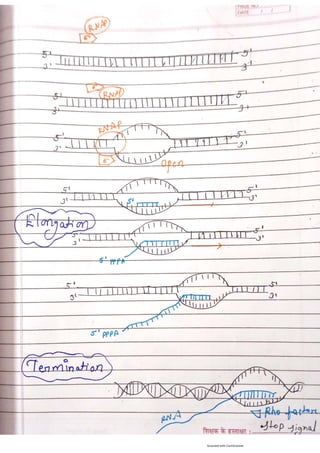 PAGE NO.
DATE
RNAP
σ
5' 5'
3' 3'
σ
RNAP
5' 5'
3' 3'
RNAP
5' 5'
3' 3'
σ
open
5' 5'
3' 3'
5'
Elongation
5' 5'
3' 3'
5' PPPA
5' 5'
3' 3'
5' PPPA
Termination
RNA
Rho factor
stop signal
शिक्षक के हस्ताक्षर
Scanned with CamScanner